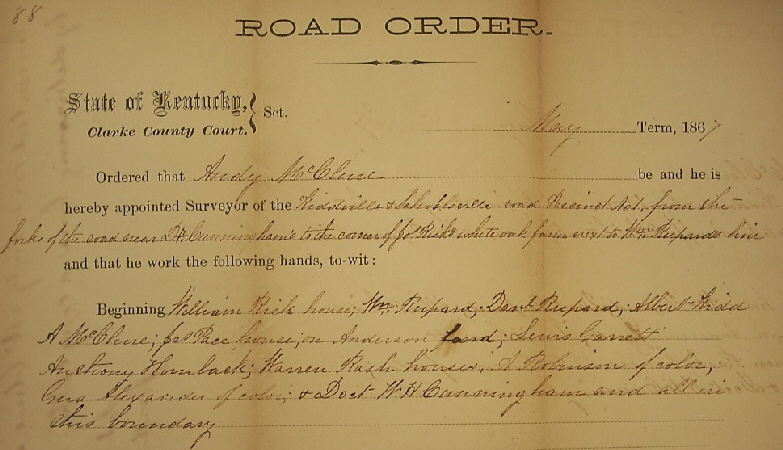 88
ROAD ORDER.
State of Kentucky,
Clarke County Court.
Sct.
May Term, 1867
Ordered that Andy McClure be and he is
hereby appointed Surveyor of the Kiddville & road Precinct No 1, from the
forks of the road near Dr Cunningham's to the corner of Jo Risk's white oak farm next to Wm Rupards line
and that he work the following hands, to-wit:
Beginning William Risk house; Wm Rupard; Danl Rupard; Albert Kidd
A McClure; Jas Pace house; on Anderson land; Lewis Garrett
Anthony Hornback; Warren Rash houses, A Robinson of color,
Alexander of color; & Doct W H Cunningham and all in
this boundary